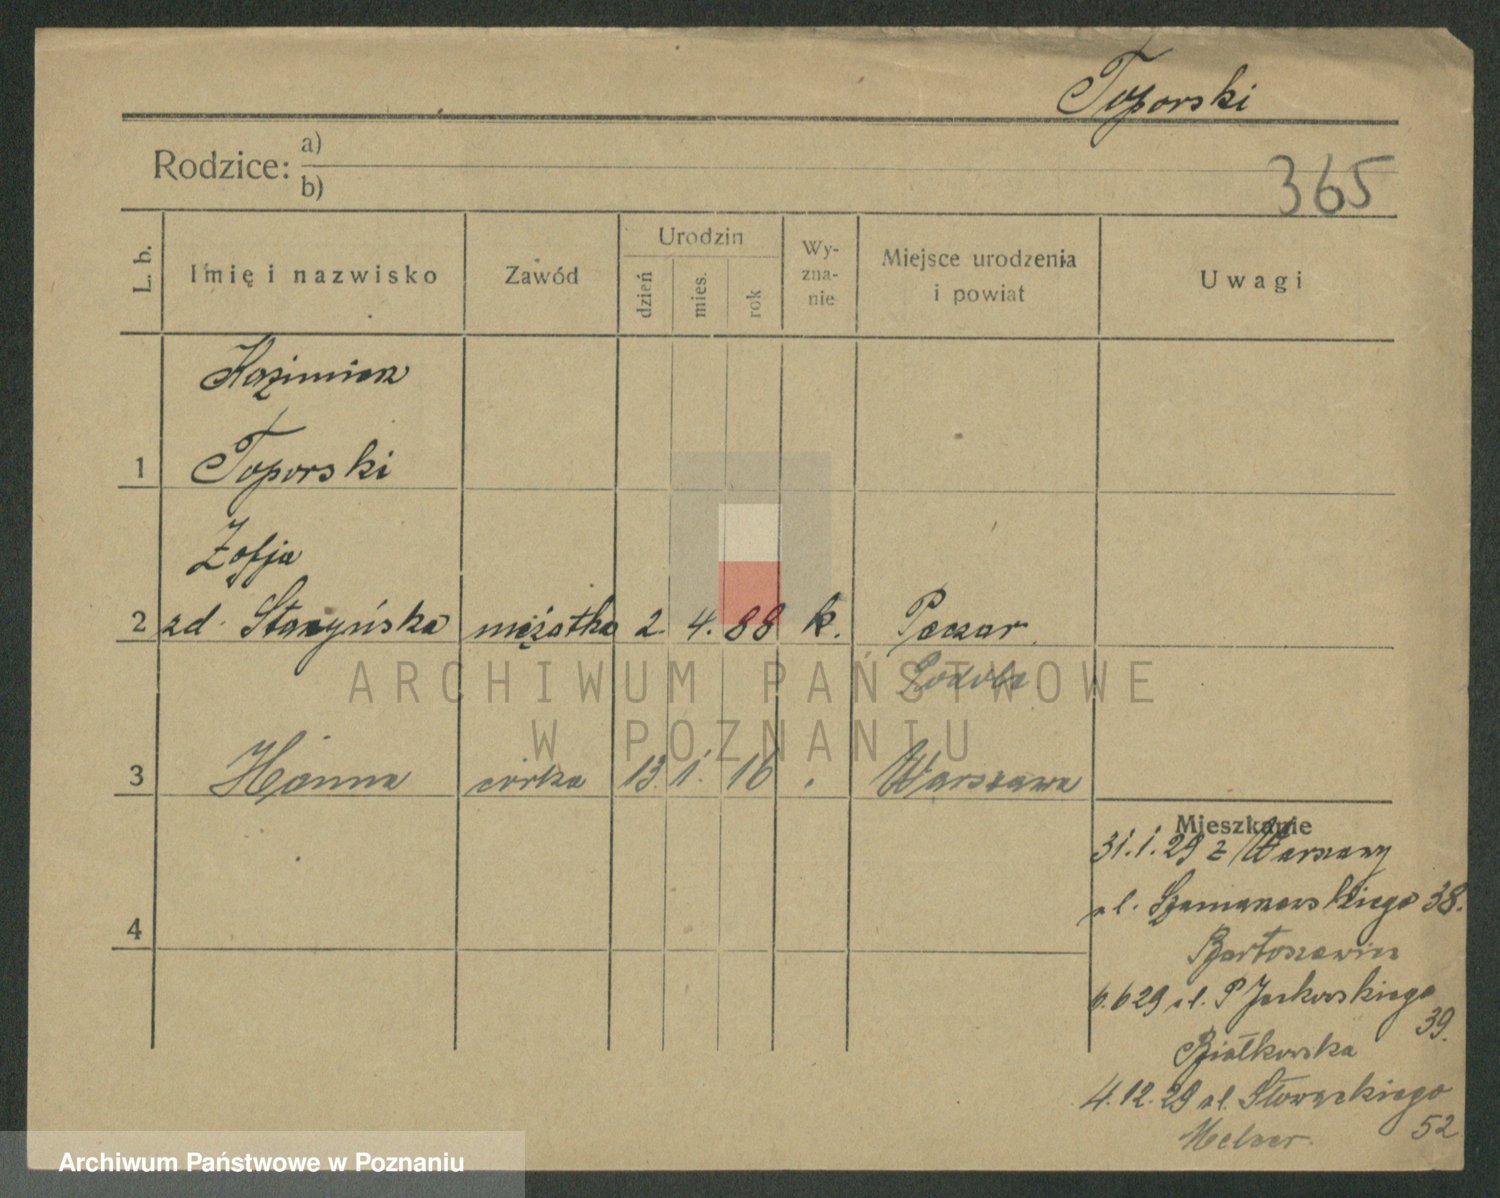 Toporski
Rodzice: a)
b)
365
L. b.
Imię i nazwisko
Zawód
Urodzin
dzień
mies.
rok
Wy-
zna-
nie
Miejsce urodzenia
i powiat
Uwagi
Kazimierz
1 Toporski
Zofja
2 zd. Starzyńska mężatka 2. 4. 88 k. Peczar
3 Hanna córka 13. 1. 16 Warszawa
Mieszkanie
31.1.29 z Warszawy
ul. Szamarzewskiego 38.
Bartoszewicz
6.6 29 ul. P Jackowskiego
39.
Białkowska
4.12.29 ul. Słowackiego
52
Melzer.
4
ARCHIWUM PAŃSTWOWE
W POZNANIU
Archiwum Państwowe w Poznaniu